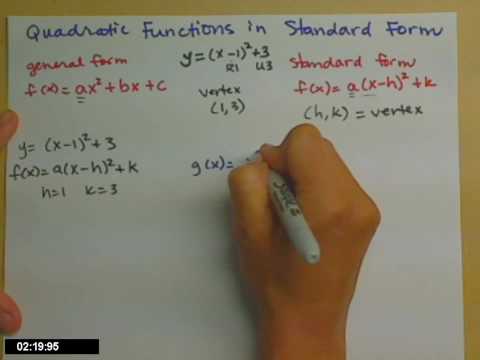 Quadratic Functions in Standard Form
general form
f(x) = ax² + bx + c
y = (x-1)² + 3
R1 U3
vertex
(1, 3)
standard form
f(x) = a(x-h)² + k
(h, k) = vertex
y = (x-1)² + 3
f(x) = a(x-h)² + k
h=1 k=3
g(x) =
Sharpie
02:19:95